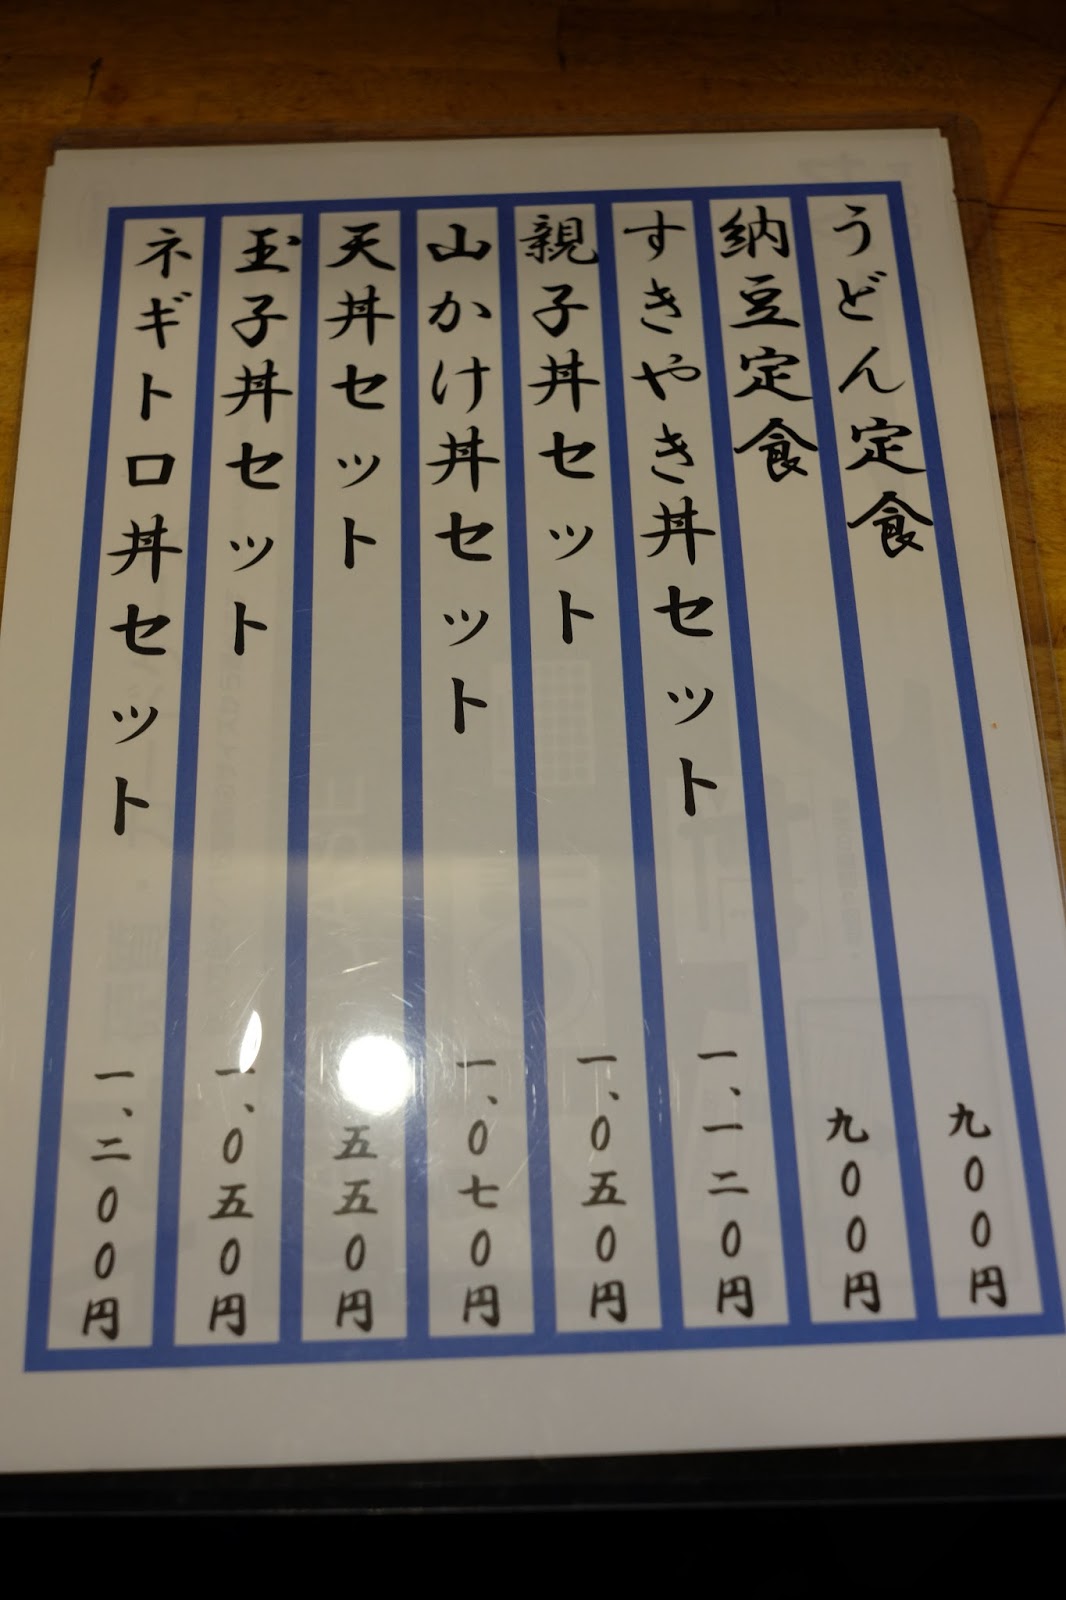 うどん定食 九〇〇円
納豆定食 九〇〇円
すきやき丼セット 一、一二〇円
親子丼セット 一、〇五〇円
山かけ丼セット 一、〇七〇円
天丼セット 五五〇円
玉子丼セット 一、〇五〇円
ネギトロ丼セット 一、二〇〇円